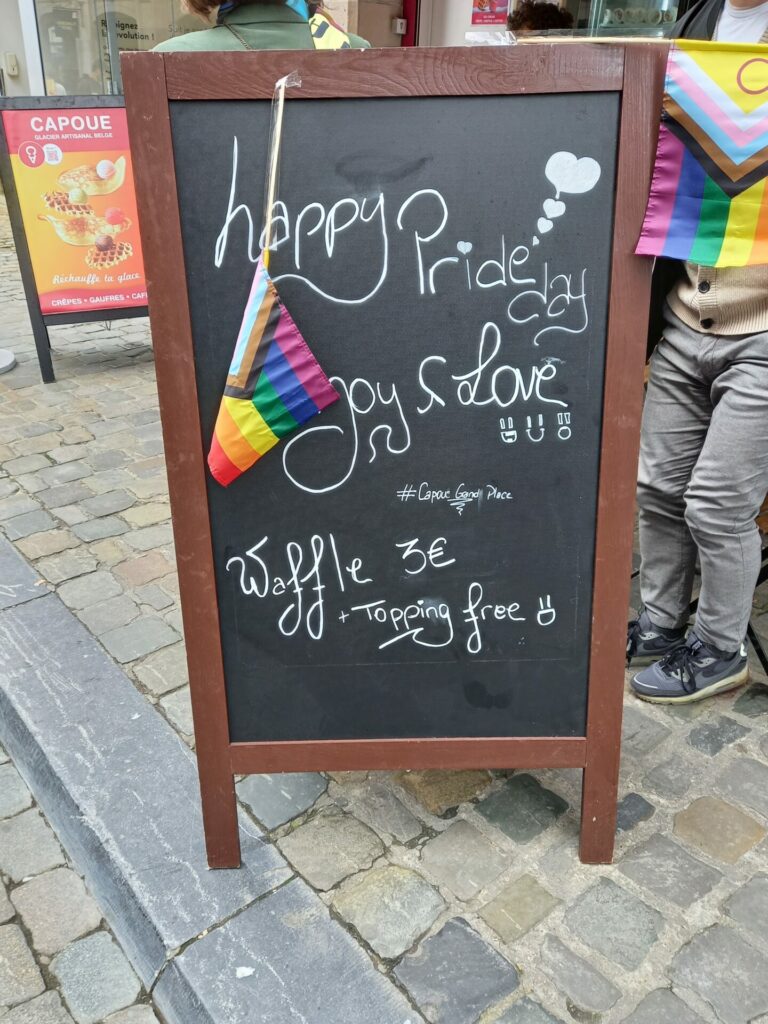 Rejoignez
la révolution !
CAPOUE
GLACIER ARTISANAL BELGE
Réchauffe ta glace
CRÊPES • GAUFRES • CAF
happy Pride day
Joy & Love
#Capoue Grand Place
Waffle 3€
+ Topping free